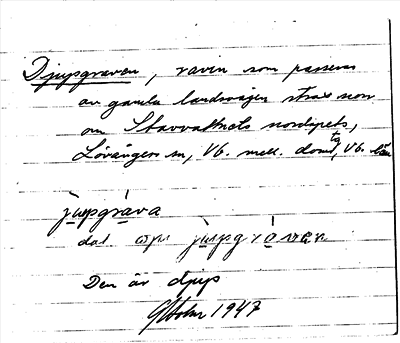 Djupgraven, ravin som passeras
av gamla landsvägen strax norr
om Stavvattnets nordspets,
Lövångers sn, Vb. mell. doms tg, Vb. län
jupgrava
dat
Den är djup
GHolm 1947